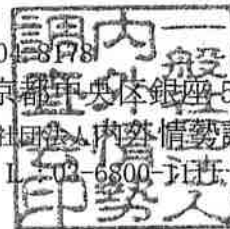 04-8178
京都中央区銀座5
社団法人内外情勢調
L：03-6800-1111
一般社団法人
内外情勢
調査会印